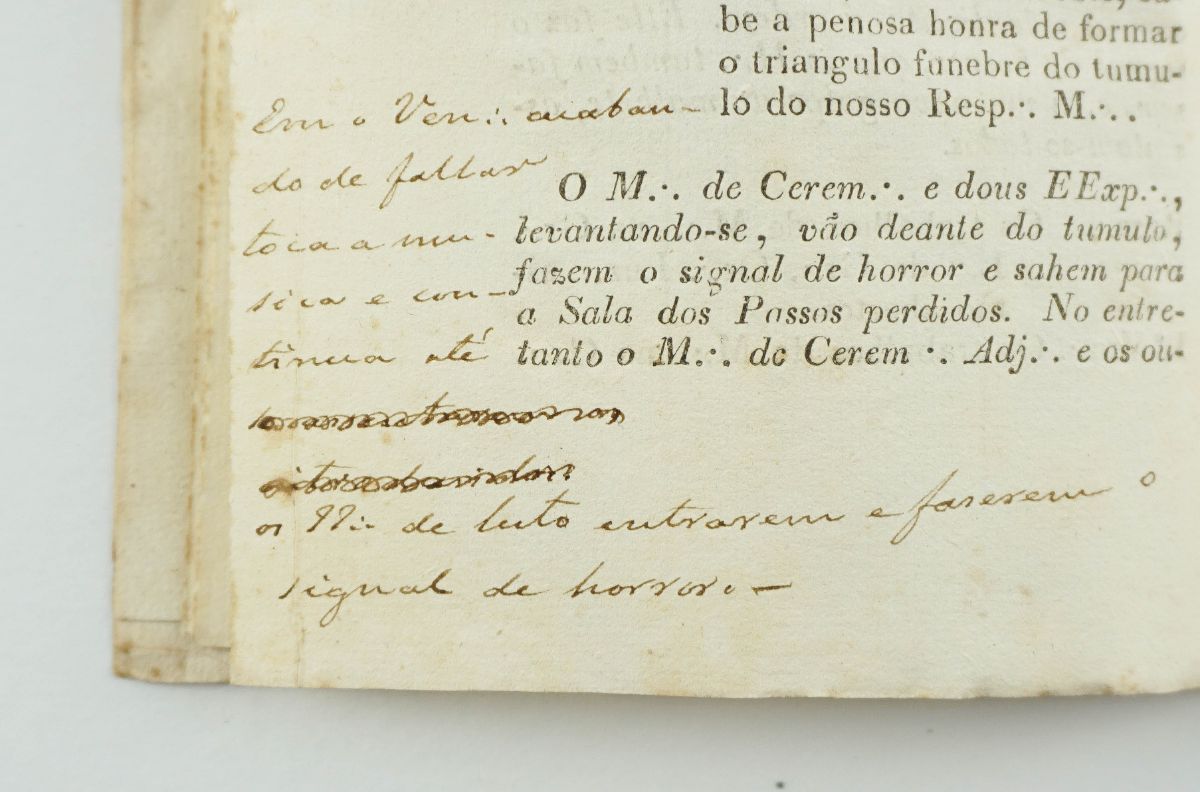 be a penosa honra de formar
o triangulo funebre do tumu-
lo do nosso Resp.·. M.·..
O M.·. de Cerem.·. e dous EExp.·.,
levantando-se, vão deante do tumulo,
fazem o signal de horror e sahem para
a Sala dos Passos perdidos. No entre-
tanto o M.·. de Cerem.·. Adj.·. e os ou-
Em o Ven.·. acaban-
do de fallar
toca a mu-
sica e con-
tinua até
os de luto entrarem e faserem o
signal de horror. —